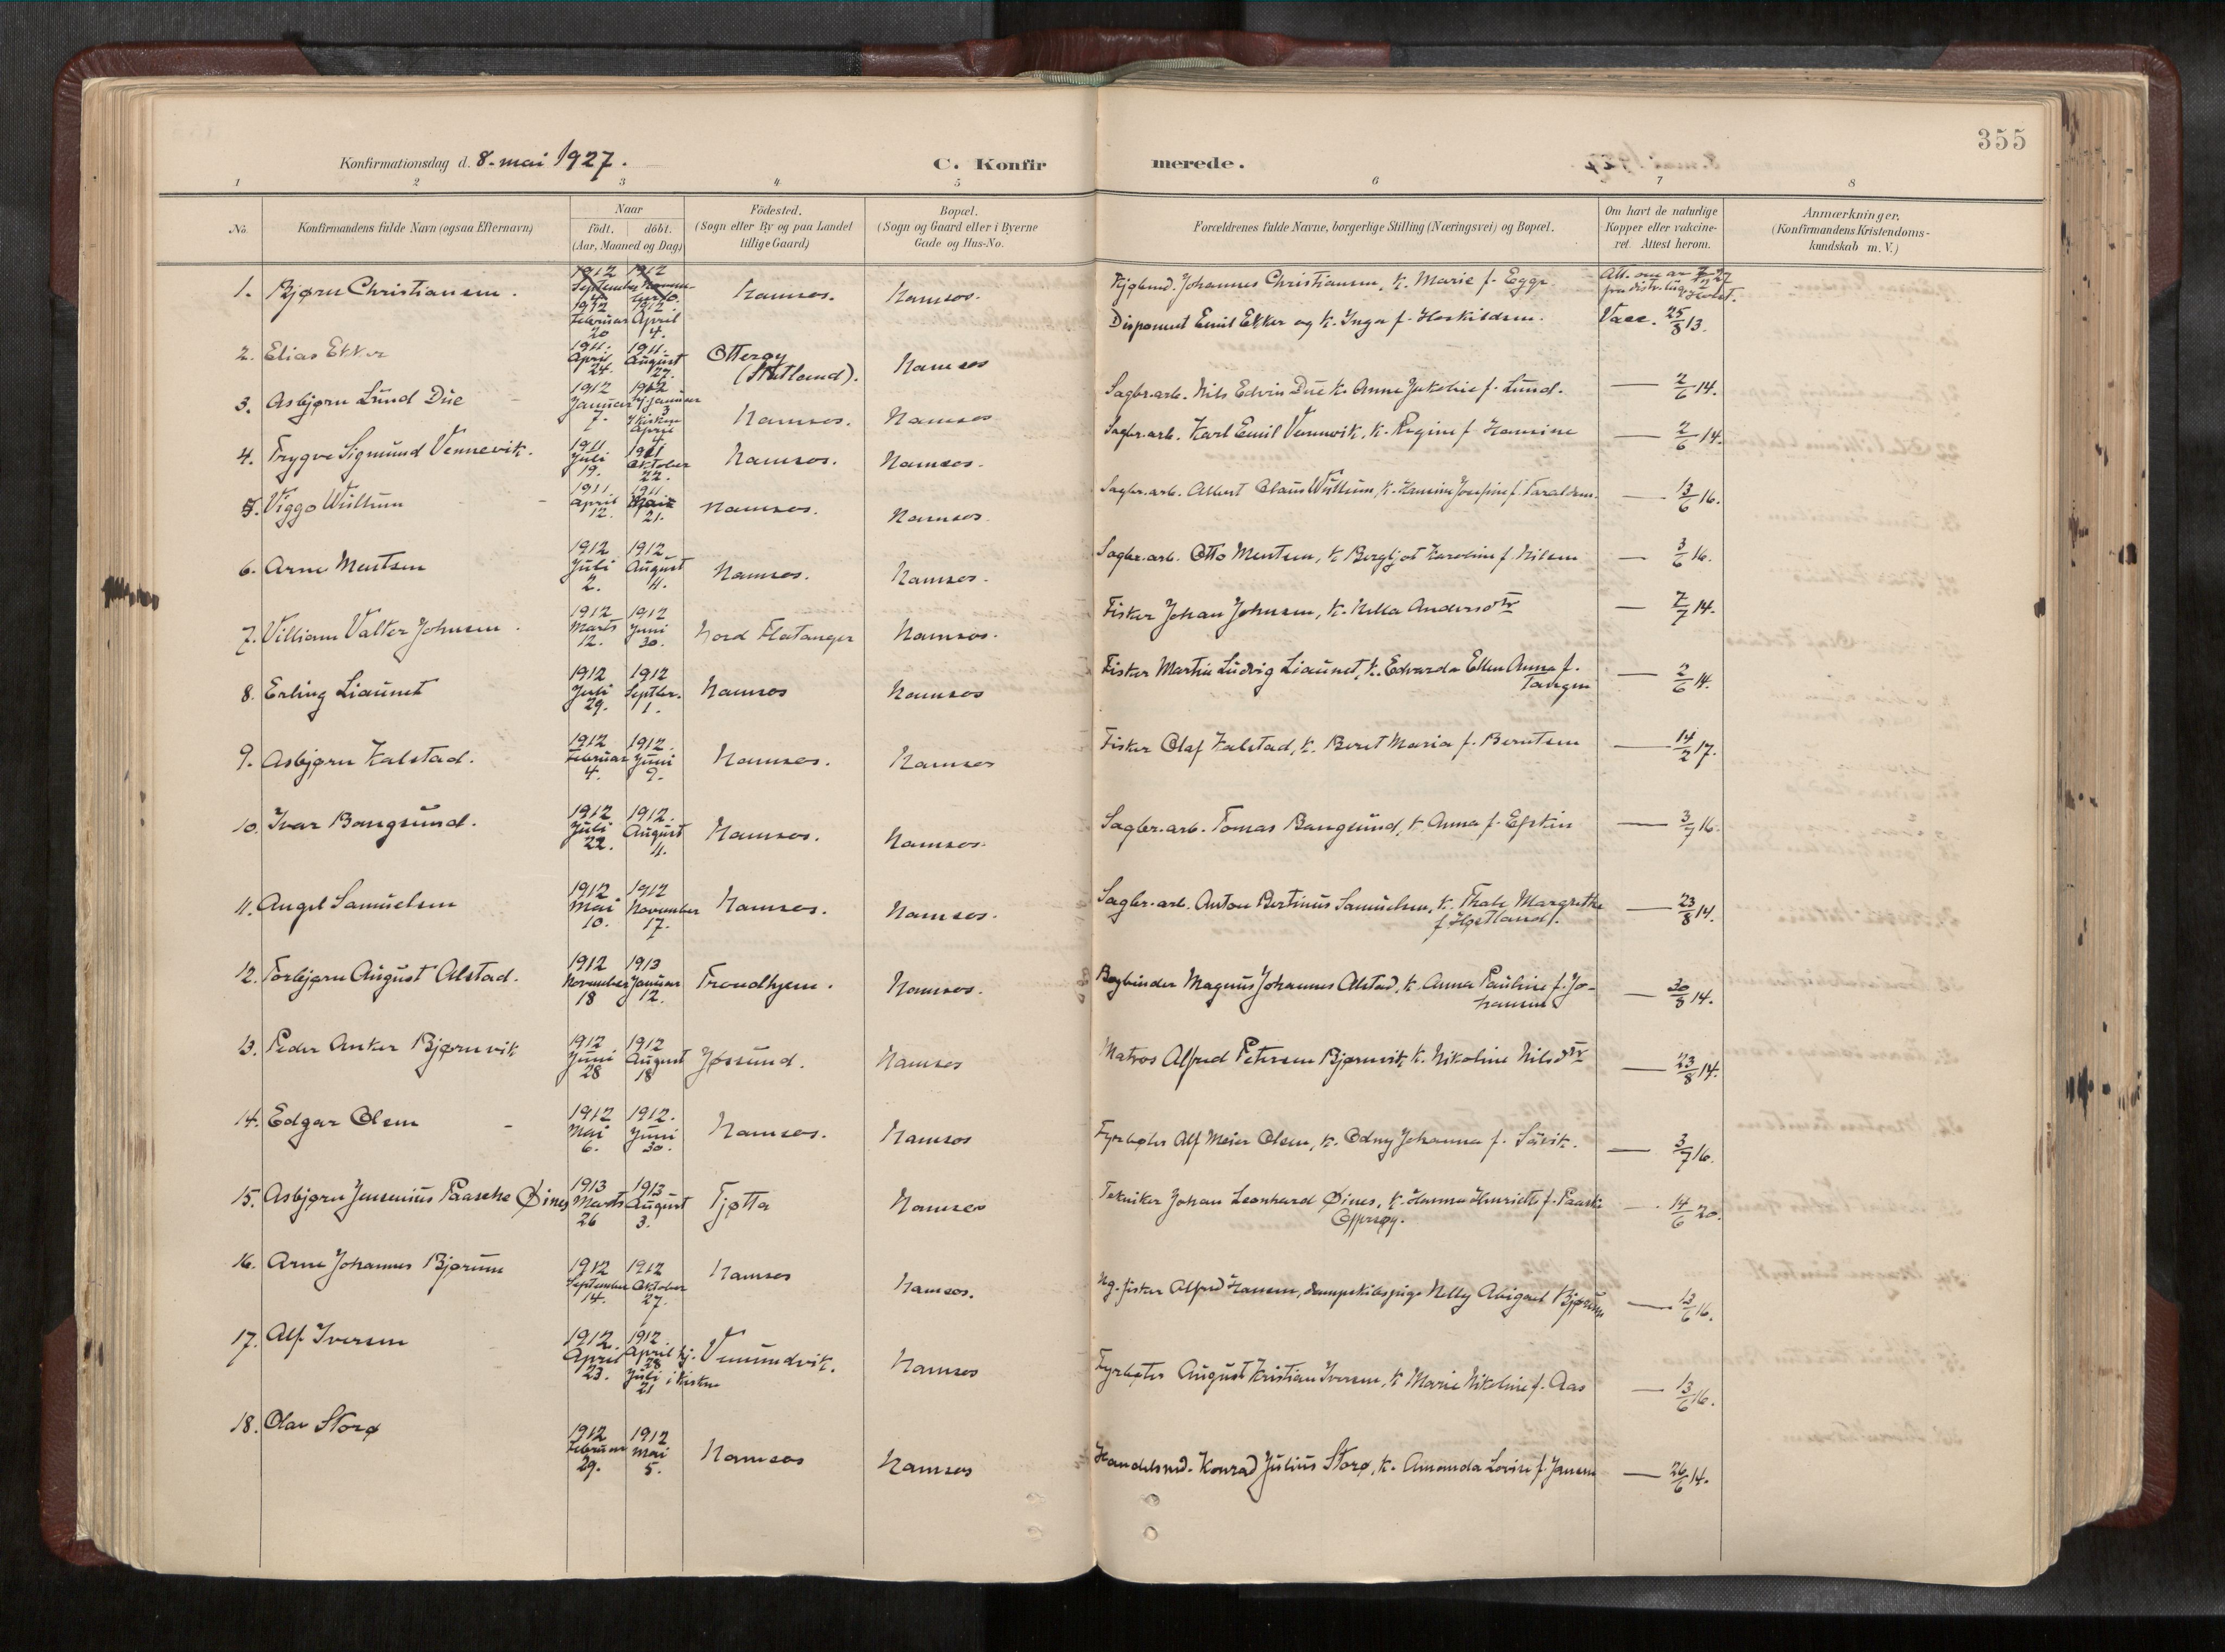 355
Konfirmationsdag d. 8. mai 1927.
C. Konfirmerede.
1 2 3 4 5 6 7 8
No.
Konfirmandens fulde Navn (ogsaa Efternavn)
Naar
födt. döbt.
(Aar, Maaned og Dag)
Födested.
(Sogn eller By og paa Landet
tillige Gaard)
Bopæl.
(Sogn og Gaard eller i Byerne
Gade og Hus-No.
Forældrenes fulde Navne, borgerlige Stilling (Næringsvei) og Bopæl.
Om havt de naturlige
Kopper eller vakcine-
ret. Attest herom.
Anmærkninger.
(Konfirmandens Kristendoms-
kundskab m. V.)
1. Bjørn Christiansen. 1912 September 1912 Namsos. Namsos. Johannes Christiansen, k. Marie f. Egge Att. om
2. Elias Ekker 1912 Februar 20 1912. April 4. Namsos Disponent Emil Ekker og k. Inga f. Vacc. 25/8 13.
3. Asbjørn Lund Due 1911. April 24. 1911. August 27. Otterøy (Statland). Namsos Sagbr.arb. Nils Edvin Due k. Anna Jakobie f. Lund. — 2/6 14.
4. Trygve Sigmund Vennevik. 1912 Januar 7. 1912 April Namsos. Namsos. Sagbr.arb. Karl Emil Vennevik, k. Regine f. — 2/6 14.
5. Viggo Willum 1911 Juli 19. 1911 Oktober 22. Namsos. Namsos. Sagbr.arb. Albert Claus Willum, k. — 13/6 16.
6. Arne Mentsen 1912 Juli 2. 1912 August 11. Namsos. Namsos. Sagbr.arb. Otto Mentsen, k. Bergljot Karoline f. Nilsen — 3/6 16.
7. Villiam Valter Johnsen. 1912 Marts 12. 1912 Juni 30. Nord Flatanger Namsos. Fisker Johan Johnsen, k. Nella Andersdtr — 7/7 14.
8. Erling Liaunet 1912 Juli 29. 1912 Septbr. 1. Namsos Namsos Fisker Martin Ludvig Liaunet, k. Edvarda Ellen Anna f.
Tangen — 2/6 14.
9. Asbjørn Kalstad. 1912 Februar 4. 1912. Juni 9. Namsos. Namsos Fisker Olaf Kalstad, k. Beret Maria f. Berntsen — 14/2 17.
10. Ivar Bangsund. 1912 Juli 22. 1912. August 11. Namsos. Namsos. Sagbr.arb. Tomas Bangsund, k. Anna f. — 3/7 16.
11. Angel Samuelsen 1912 Mai 10. 1912 November 17. Namsos. Namsos. Sagbr.arb. Anton Bertinus Samuelsen, k. Thale Margrethe — 23/8 14.
12. Torbjørn August Alstad. 1912 November 18 1913 Januar 12. Trondhjem. Namsos. Bogbinder Magnus Johannes Alstad, k. Anna Pauline f. Jo-
hansen — 30/8 14.
13. Peder Anker Bjørnvik 1912 Juni 28 1912 August 18 Jøssund. Namsos Matros Alfred Petersen Bjørnvik, k. Nikoline Nilsdtr — 23/8 14.
14. Edgar Olsen 1912 Mai 6. 1912. Juni 30. Namsos. Namsos Fyrbøter Alf Meier Olsen, k. Odny Johanna f. Sævik. — 3/7 16.
15. Asbjørn Jensenius Paasche Øines 1913 Marts 26 1913 August 3. Tjøtta Namsos Tekniker Johan Leonhard Øines, k. Hanna Henriette f. Paaske
Offersøy. — 14/6 20.
16. Arne Johannes Bjørum 1912 September 14. 1912 Oktober 27. Namsos Namsos. Ug. fisker Alfred Hansen, dampskibspige Nelly Abigael Bjørum — 13/6 16.
17. Alf Iversen 1912. April 23. 1912. April 28 hj. Juli 21 i kirken Vemundvik. Namsos Fyrbøter August Kristian Iversen, k Marie Nikoline f. Aas — 13/6 16.
18. Olav Storø 1912 Februar 29. 1912 Mai 5. Namsos Namsos Handelsmd. Konrad Julius Storø, k. Amanda Lovise f. Jansen — 26/6 14.